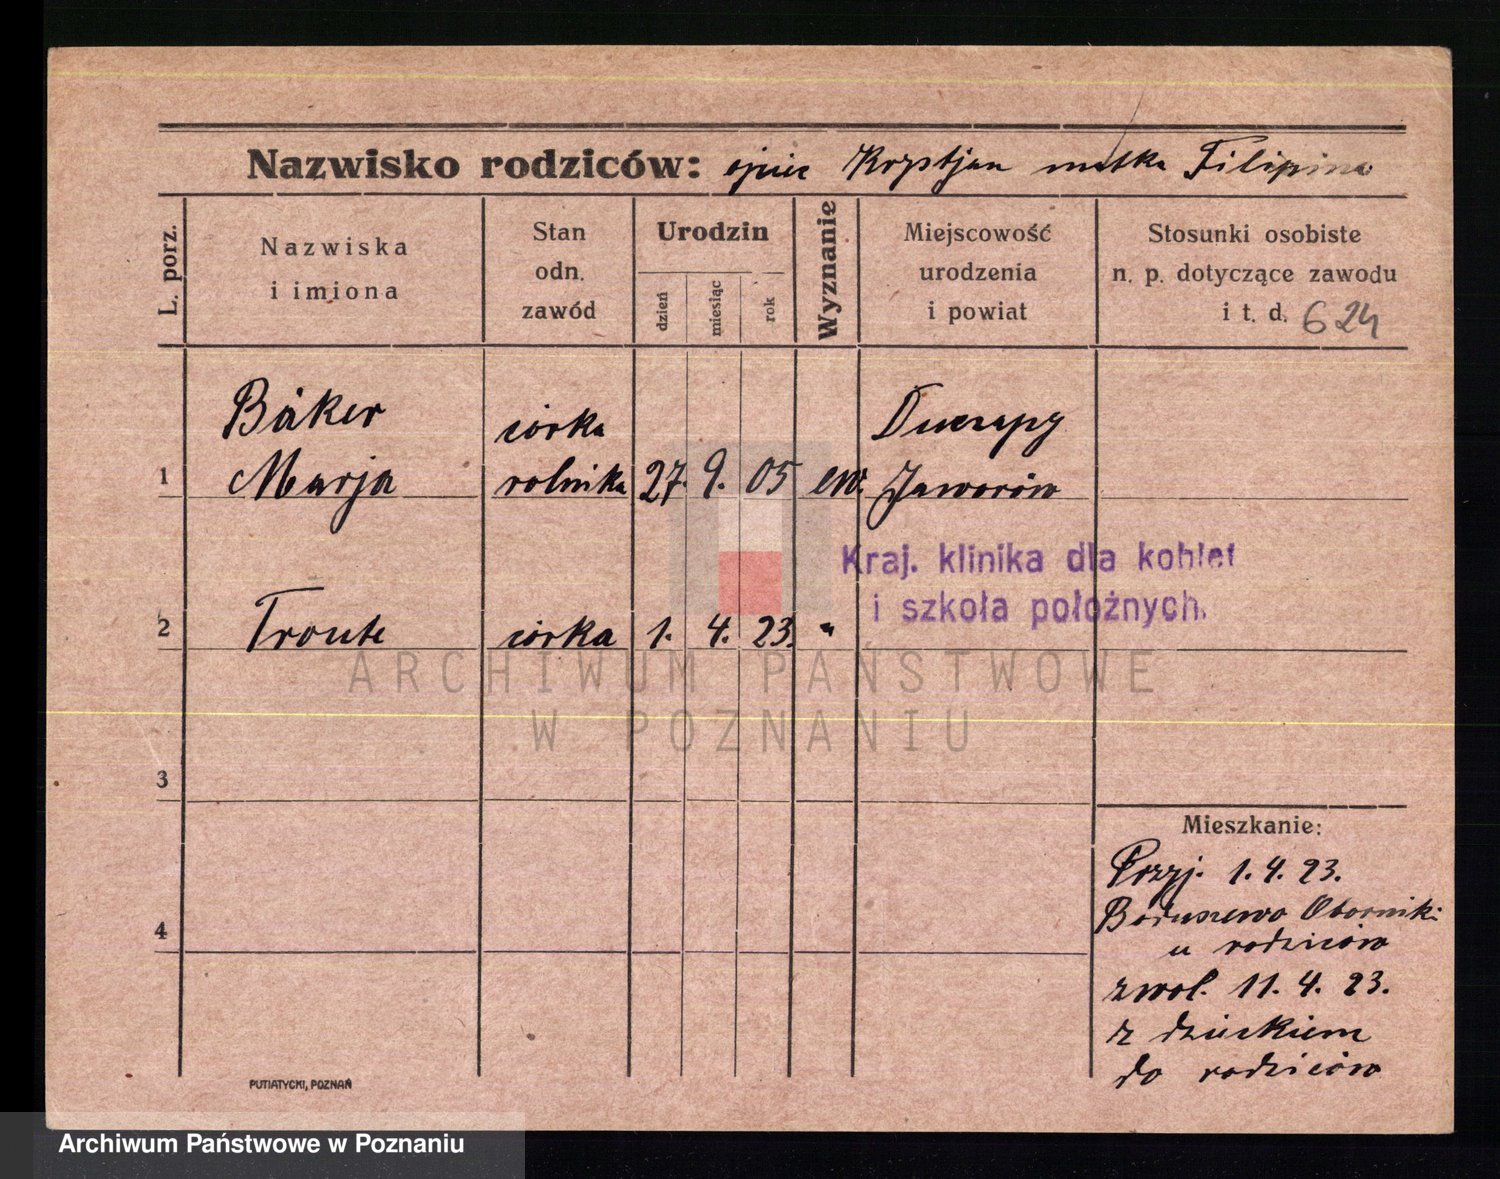 Nazwisko rodziców: ojciec Krystjan matka Filipina
L. porz.
Nazwiska
i imiona
Stan
odn.
zawód
Urodzin
dzień
miesiąc
rok
Wyznanie
Miejscowość
urodzenia
i powiat
Stosunki osobiste
n. p. dotyczące zawodu
i t. d. 624
Bäker
córka
1 Marja
rolnika 27. 9. 05 ew. Jaworów
Kraj. klinika dla kobiet
i szkoła położnych.
2 córka 1. 4. 23. "
ARCHIWUM PAŃSTWOWE
W POZNANIU
3
Mieszkanie:
Przyj. 1. 4. 23.
4
Boduszewo Oborniki
u rodziców
zwol. 11. 4. 23.
z dzieckiem
do rodziców
PUTIATYCKI, POZNAŃ
Archiwum Państwowe w Poznaniu